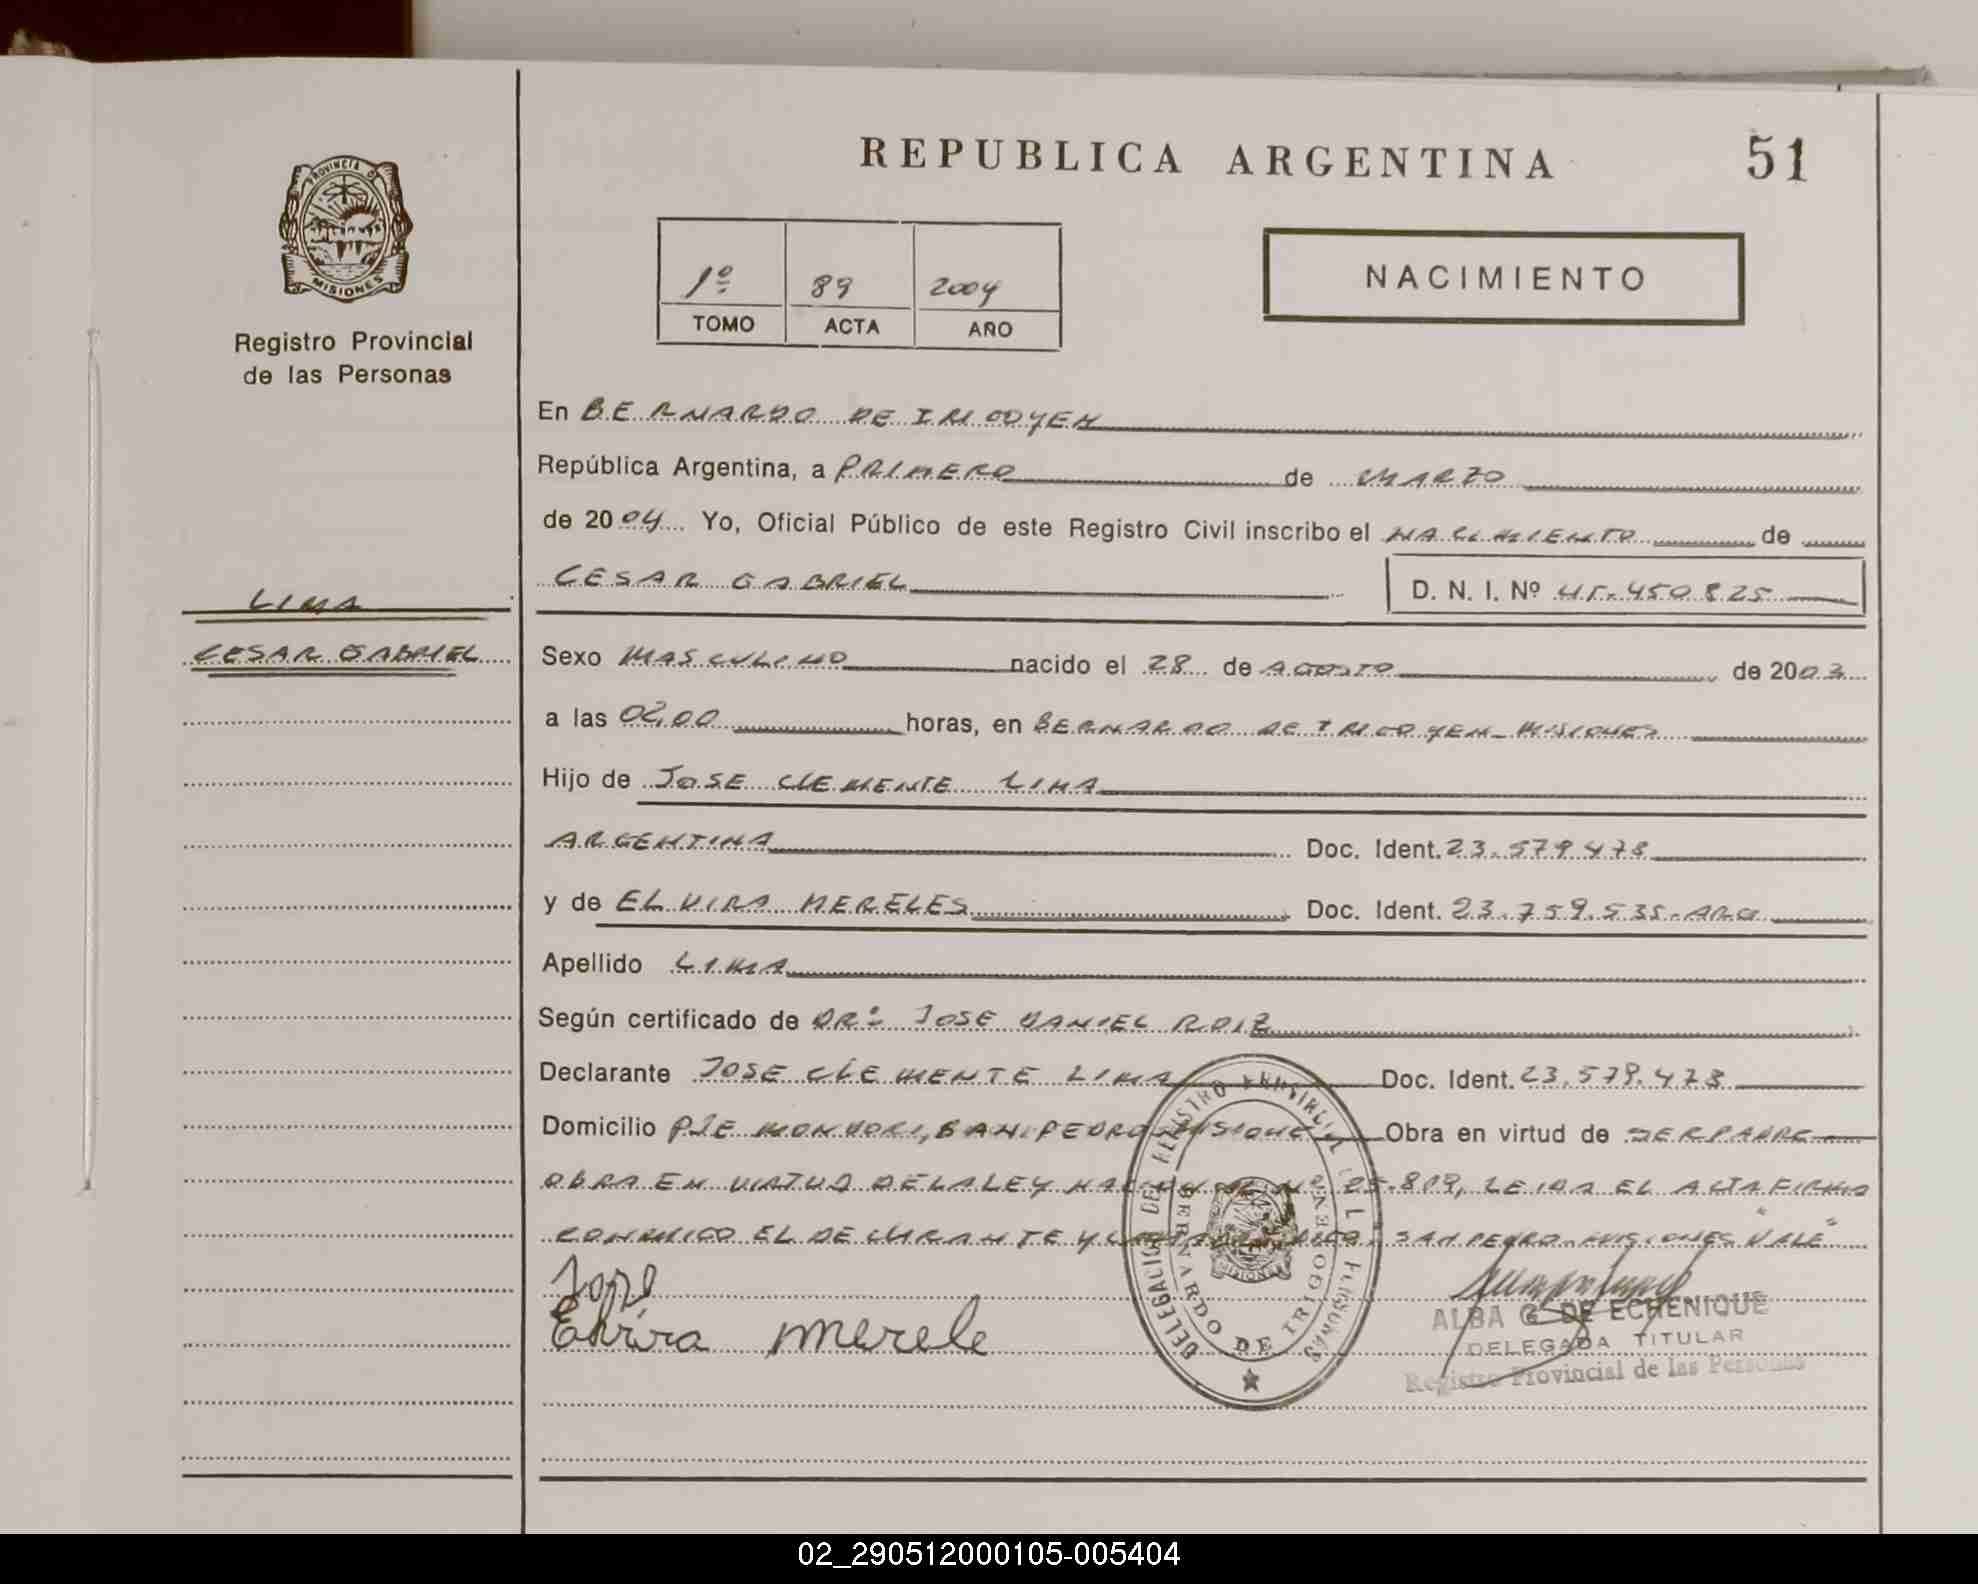 REPUBLICA ARGENTINA
51
PROVINCIA DE
MISIONES
Registro Provincial
de las Personas
1º 89 2004
TOMO ACTA AÑO
NACIMIENTO
En BERNARDO DE IRIGOYEN
República Argentina, a PRIMERO de MARZO
de 2004 Yo, Oficial Público de este Registro Civil inscribo el NACIMIENTO de
CESAR GABRIEL D. N. I. Nº 45.450.825
LIMA
CESAR GABRIEL
Sexo MASCULINO nacido el 28 de AGOSTO de 2003
a las 02,00 horas, en BERNARDO DE IRIGOYEN - MISIONES
Hijo de JOSE CLEMENTE LIMA
ARGENTINA Doc. Ident. 23.579.478
y de ELVIRA MERELES Doc. Ident. 23.759.535-ARG
Apellido LIMA
Según certificado de DRº JOSE DANIEL ROIZ
Declarante JOSE CLEMENTE LIMA Doc. Ident. 23.579.478
Domicilio PJE MONDORI, SAN PEDRO MISIONES Obra en virtud de SER PADRE
OBRA EN VIRTUD DE LA LEY 25.819, LEIDA EL ACTA FIRMA
CONMIGO EL DECLARANTE Y SAN PEDRO-MISIONES "VALE"
José
Elvira Merele
DELEGACION DEL REGISTRO PROVINCIAL DE LAS PERSONAS
BERNARDO DE IRIGOYEN
MISIONES
ALBA G. DE ECHENIQUE
DELEGADA TITULAR
Registro Provincial de las Personas
02_290512000105-005404